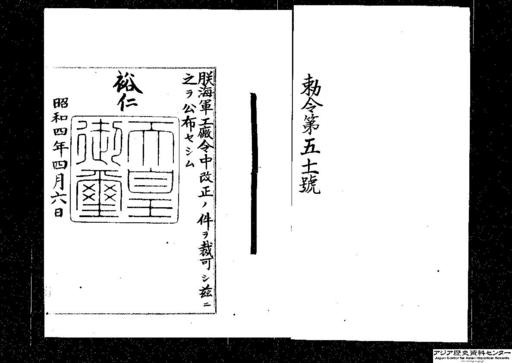 勅令第五十號
朕海軍工廠令中改正ノ件ヲ裁可シ茲ニ
之ヲ公布セシム
裕仁
天皇御璽
昭和四年四月六日
アジア歴史資料センター
Japan Center for Asian Historical Records